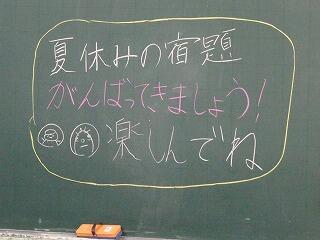 夏休みの宿題
がんばってきましょう!
楽しんでね